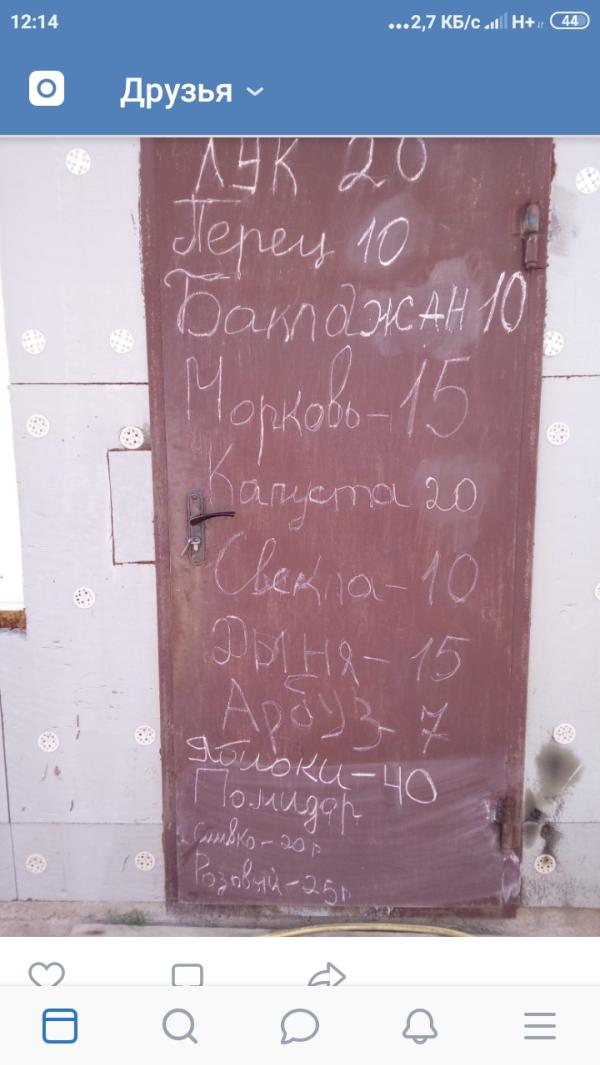 12:14
...2,7 КБ/с H+ 44
Друзья
ЛУК 20
Перец 10
Баклажан 10
Морковь-15
Капуста 20
Свекла-10
Дыня-15
Арбуз-7
Яблоки-40
Помидор
Сливка-20р
Розовый-25р